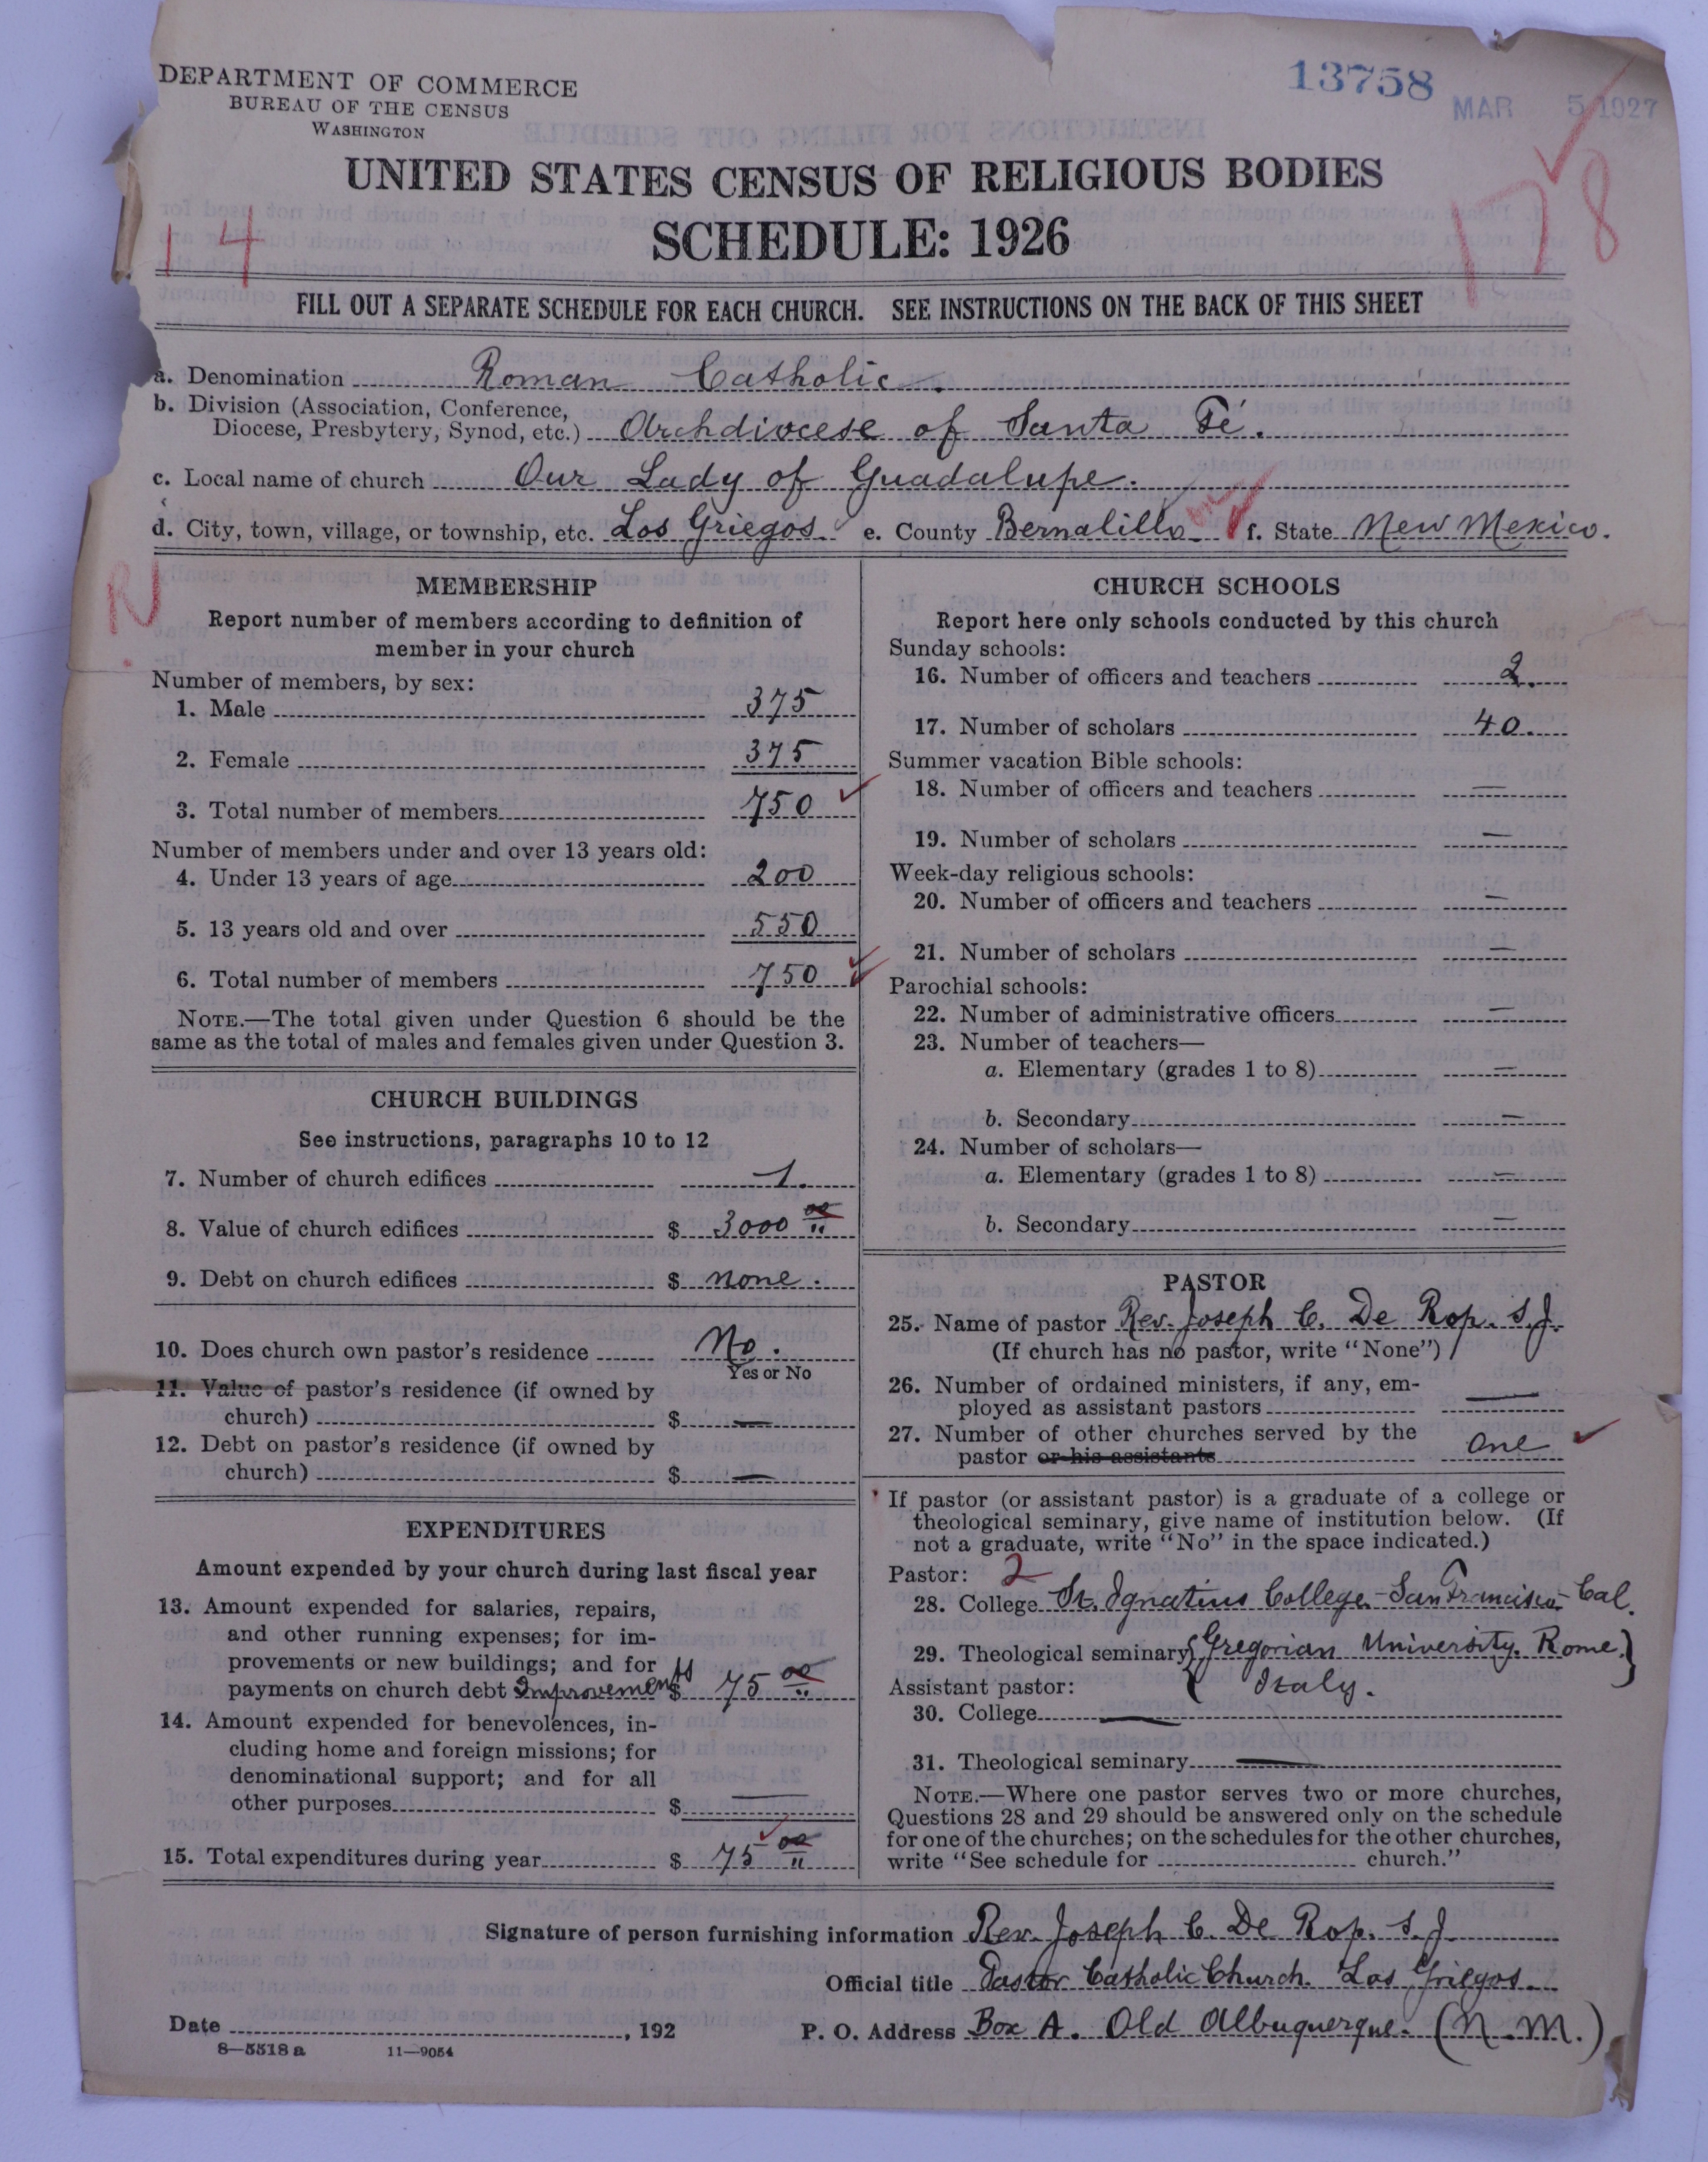 DEPARTMENT OF COMMERCE
BUREAU OF THE CENSUS
WASHINGTON
13758
MAR 5 1927
UNITED STATES CENSUS OF RELIGIOUS BODIES
SCHEDULE: 1926
14
178
FILL OUT A SEPARATE SCHEDULE FOR EACH CHURCH. SEE INSTRUCTIONS ON THE BACK OF THIS SHEET
a. Denomination Roman Catholic.
b. Division (Association, Conference,
Diocese, Presbytery, Synod, etc.) Archdiocese of Santa Fé.
c. Local name of church Our Lady of Guadalupe.
d. City, town, village, or township, etc. Los Griegos. e. County Bernalillo f. State New Mexico.
R
MEMBERSHIP
Report number of members according to definition of
member in your church
Number of members, by sex:
1. Male 375
2. Female 375
3. Total number of members 750
Number of members under and over 13 years old:
4. Under 13 years of age 200
5. 13 years old and over 550
6. Total number of members 750
NOTE.—The total given under Question 6 should be the
same as the total of males and females given under Question 3.
CHURCH BUILDINGS
See instructions, paragraphs 10 to 12
7. Number of church edifices 1.
8. Value of church edifices $ 3000 00
9. Debt on church edifices $ none.
10. Does church own pastor's residence No.
Yes or No
11. Value of pastor's residence (if owned by
church) $ —
12. Debt on pastor's residence (if owned by
church) $ —
EXPENDITURES
Amount expended by your church during last fiscal year
13. Amount expended for salaries, repairs,
and other running expenses; for im-
provements or new buildings; and for
payments on church debt Improvements $ 75 00
14. Amount expended for benevolences, in-
cluding home and foreign missions; for
denominational support; and for all
other purposes $ —
15. Total expenditures during year $ 75 00
CHURCH SCHOOLS
Report here only schools conducted by this church
Sunday schools:
16. Number of officers and teachers 2.
17. Number of scholars 40.
Summer vacation Bible schools:
18. Number of officers and teachers —
19. Number of scholars —
Week-day religious schools:
20. Number of officers and teachers —
21. Number of scholars —
Parochial schools:
22. Number of administrative officers —
23. Number of teachers—
a. Elementary (grades 1 to 8) —
b. Secondary —
24. Number of scholars—
a. Elementary (grades 1 to 8) —
b. Secondary —
PASTOR
25. Name of pastor Rev. Joseph C. De Rop. S.J.
(If church has no pastor, write "None")
26. Number of ordained ministers, if any, em-
ployed as assistant pastors —
27. Number of other churches served by the
pastor or his assistants one
If pastor (or assistant pastor) is a graduate of a college or
theological seminary, give name of institution below. (If
not a graduate, write "No" in the space indicated.)
Pastor: 2
28. College St. Ignatius College - San Francisco - Cal.
29. Theological seminary {Gregorian University. Rome.}
Assistant pastor: Italy.
30. College —
31. Theological seminary —
NOTE.—Where one pastor serves two or more churches,
Questions 28 and 29 should be answered only on the schedule
for one of the churches; on the schedules for the other churches,
write "See schedule for church."
Signature of person furnishing information Rev. Joseph C. De Rop. S.J.
Official title Pastor Catholic Church. Los Griegos.
Date , 192 P. O. Address Box A. Old Albuquerque. (N.M.)
8—5518 a 11—9054